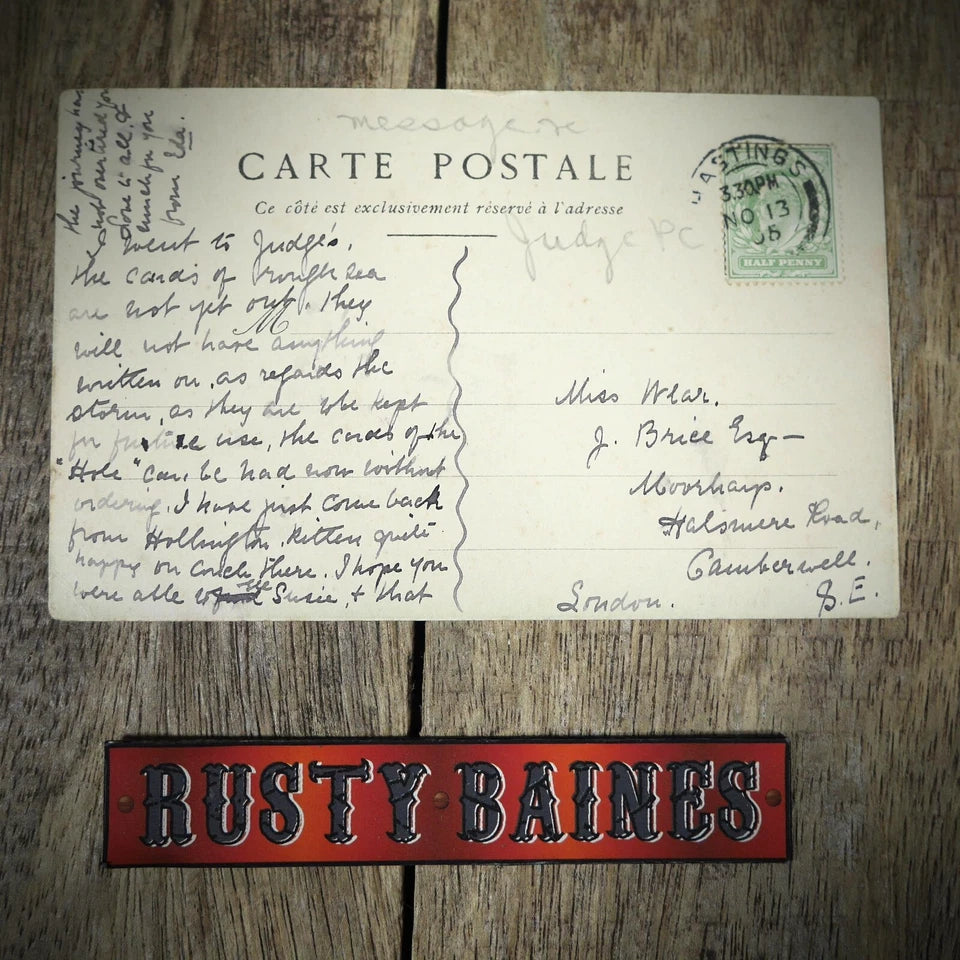 message re
CARTE POSTALE
Ce côté est exclusivement réservé à l'adresse
Judge PC
HASTINGS
3.30PM
NO 13
05
HALF PENNY
Went to Judge's.
The cards of rough sea
are not yet out. They
will not have anything
written on, as regards the
storm, as they are to be kept
for future use, the cards of the
"Hole" can be had now without
ordering. I have just come back
from Hollington. Kitten quite
happy on couch there. I hope you
were able to see Susie, & that
the journey has
not overtired you
love to all, &
much for you
from Ida.
Miss Wear.
J. Brice Esq—
Moorharp.
Halsmere Road,
Camberwell.
S.E.
London.
RUSTY BAINES